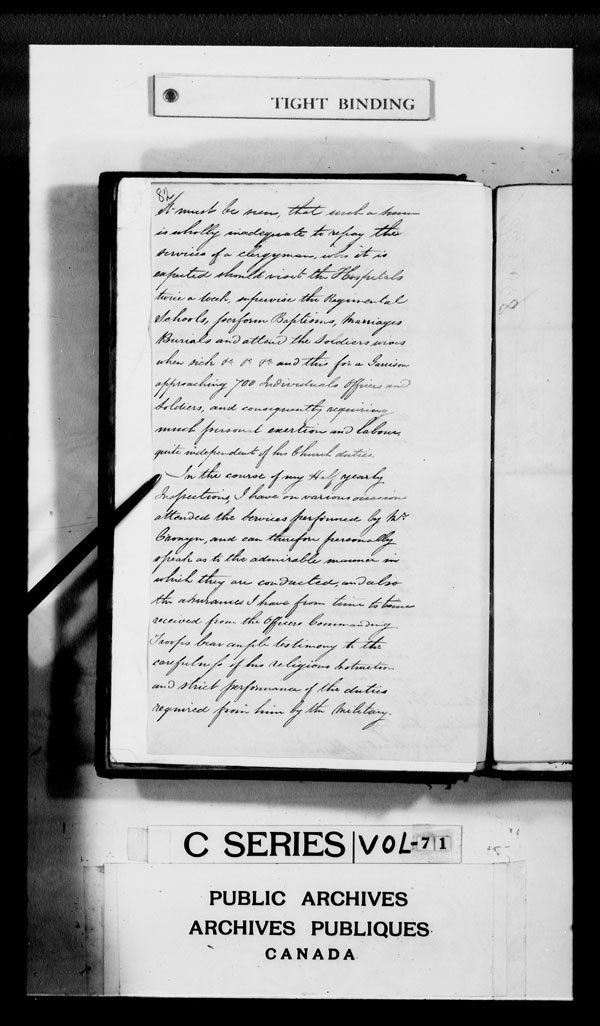 TIGHT BINDING
82
It must be seen, that such a sum
is wholly inadequate to repay the
services of a clergyman, who it is
expected should visit the Hospitals
twice a week, supervise the Regimental
Schools, perform Baptisms, Marriages
Burials and attend the Soldiers wives
when sick &c &c &c and this for a Garrison
approaching 700 Individuals Officers and
Soldiers, and consequently requiring
much personal exertion and labour,
quite independent of his Church duties.
In the course of my Half yearly
Inspections, I have on various occasions
attended the Services performed by Mr
Cronyn, and can therefore personally
speak as to the admirable manner in
which they are conducted, and also
the assurances I have from time to time
received from the Officers Commanding
Troops bear ample testimony to the
carefulness of his religious instruction
and strict performance of the duties
required from him by the Military.
C SERIES VOL-71
PUBLIC ARCHIVES
ARCHIVES PUBLIQUES
CANADA